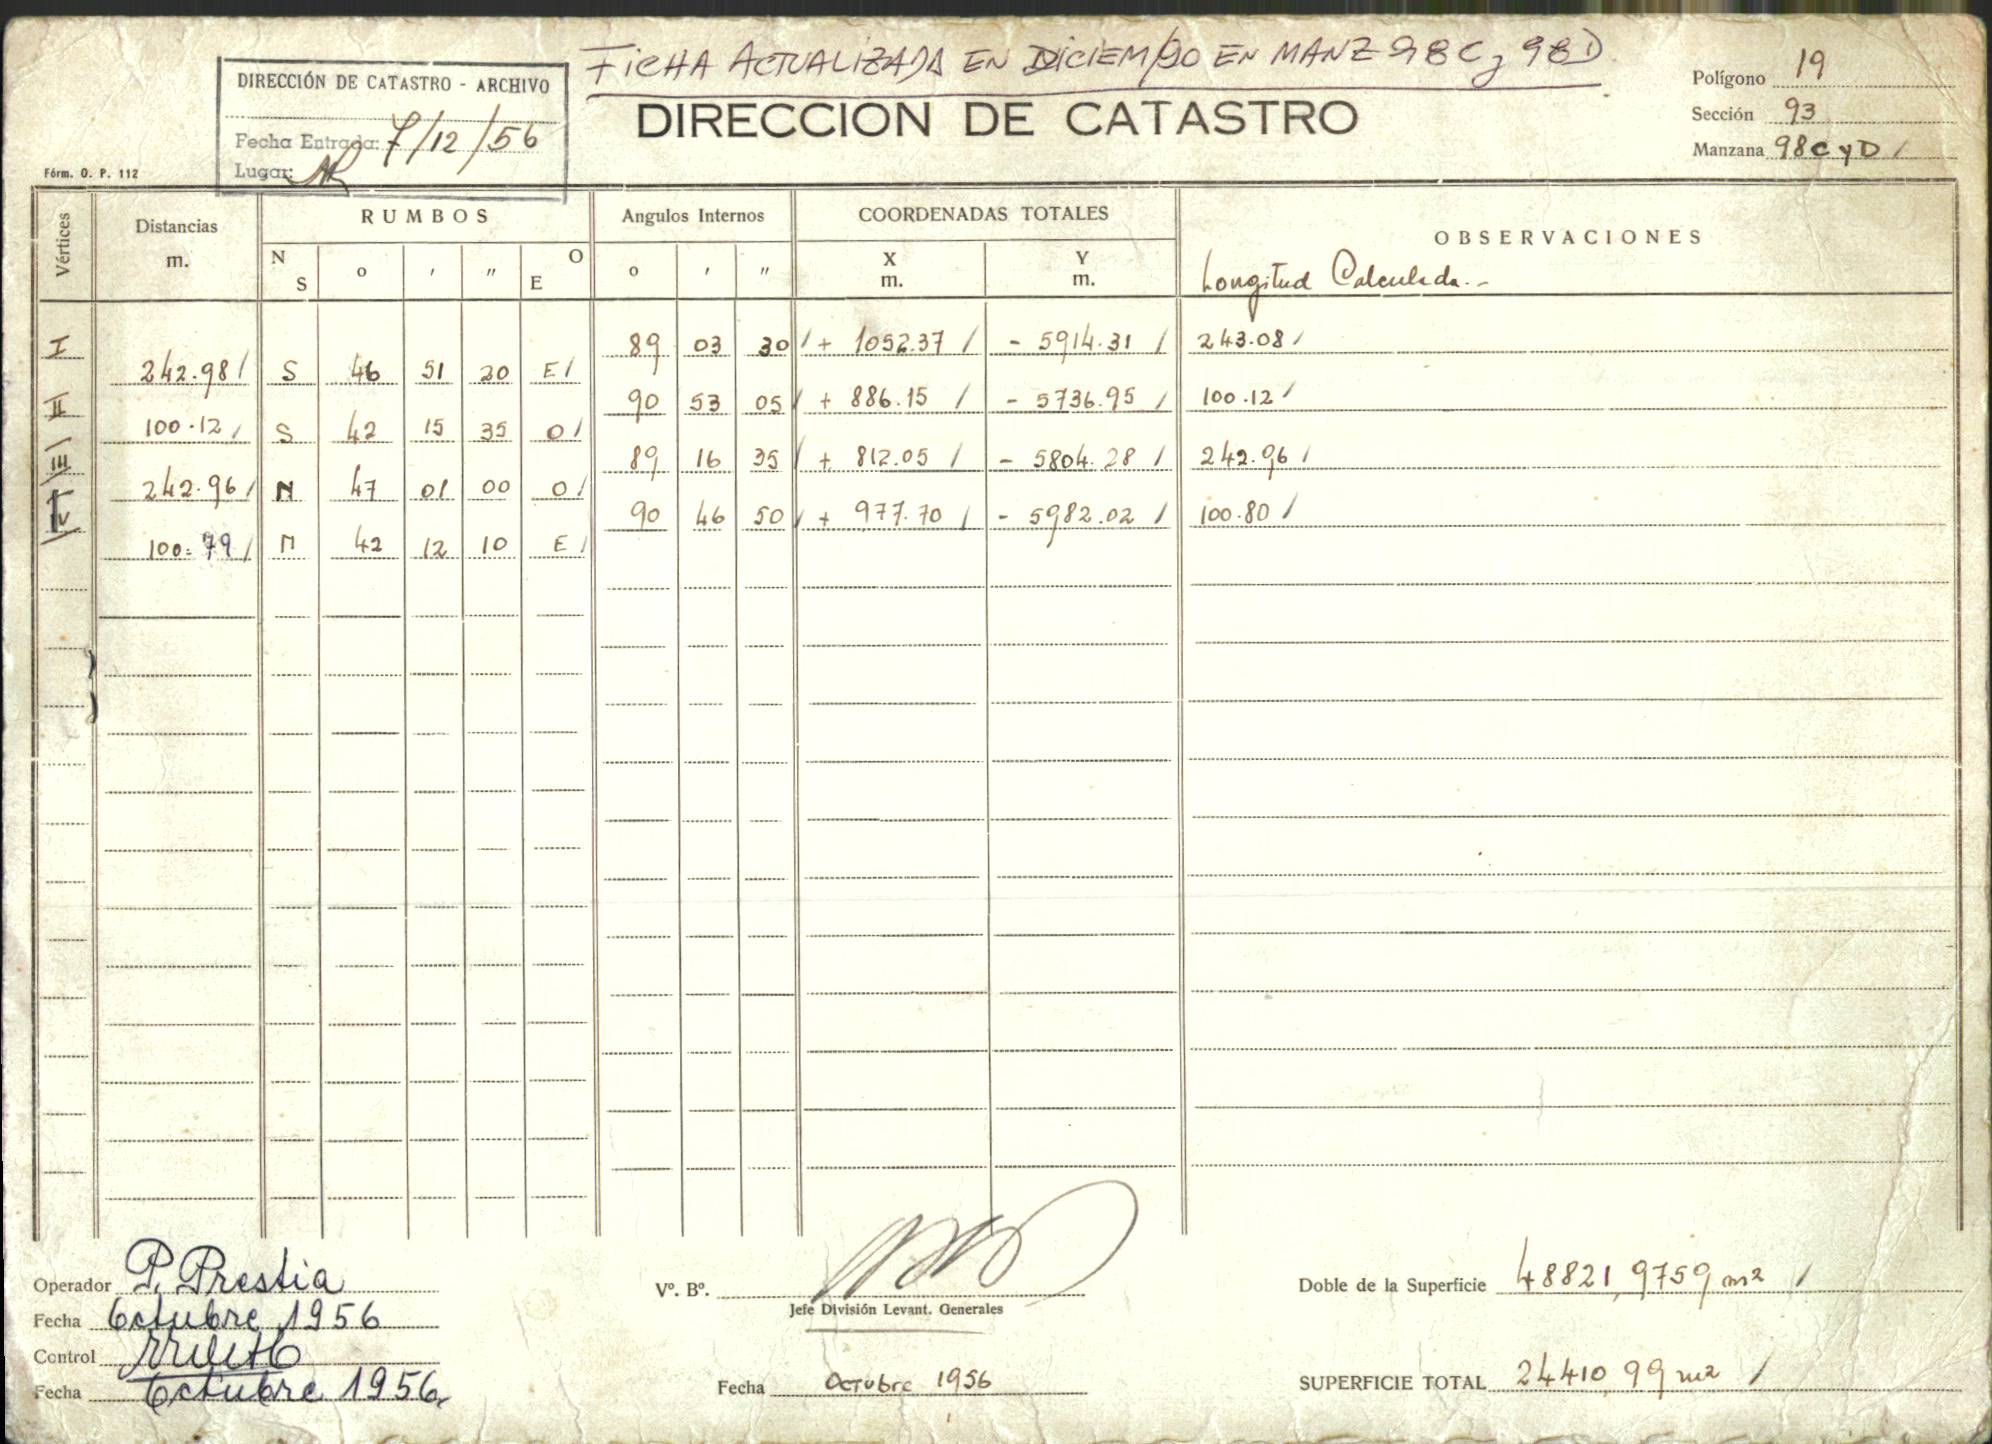 FICHA ACTUALIZADA EN DICIEM/90 EN MANZ 98C y 98D
DIRECCIÓN DE CATASTRO - ARCHIVO
Fecha Entrada: 7/12/56
Lugar:
DIRECCION DE CATASTRO
Polígono 19
Sección 93
Manzana 98C y D /
Fórm. O. P. 112
Vértices
Distancias m.
RUMBOS
Angulos Internos
COORDENADAS TOTALES
OBSERVACIONES
N S ° ′ ″ O E
° ′ ″
X m.
Y m.
Longitud Calculada.-
I 89 03 30 / + 1052.37 / - 5914.31 / 243.08 /
242.98 / S 46 51 20 E /
II 90 53 05 / + 886.15 / - 5736.95 / 100.12 /
100.12 / S 42 15 35 O /
III 89 16 35 / + 812.05 / - 5804.28 / 242.96 /
242.96 / N 47 01 00 O /
IV 90 46 50 / + 977.70 / - 5982.02 / 100.80 /
100.79 / N 42 12 10 E /
Operador P. Prestia
Fecha Octubre 1956
Control
Fecha Octubre 1956
Vº. Bº.
Jefe División Levant. Generales
Fecha Octubre 1956
Doble de la Superficie 48821,9759 m2 /
SUPERFICIE TOTAL 24410,99 m2 /